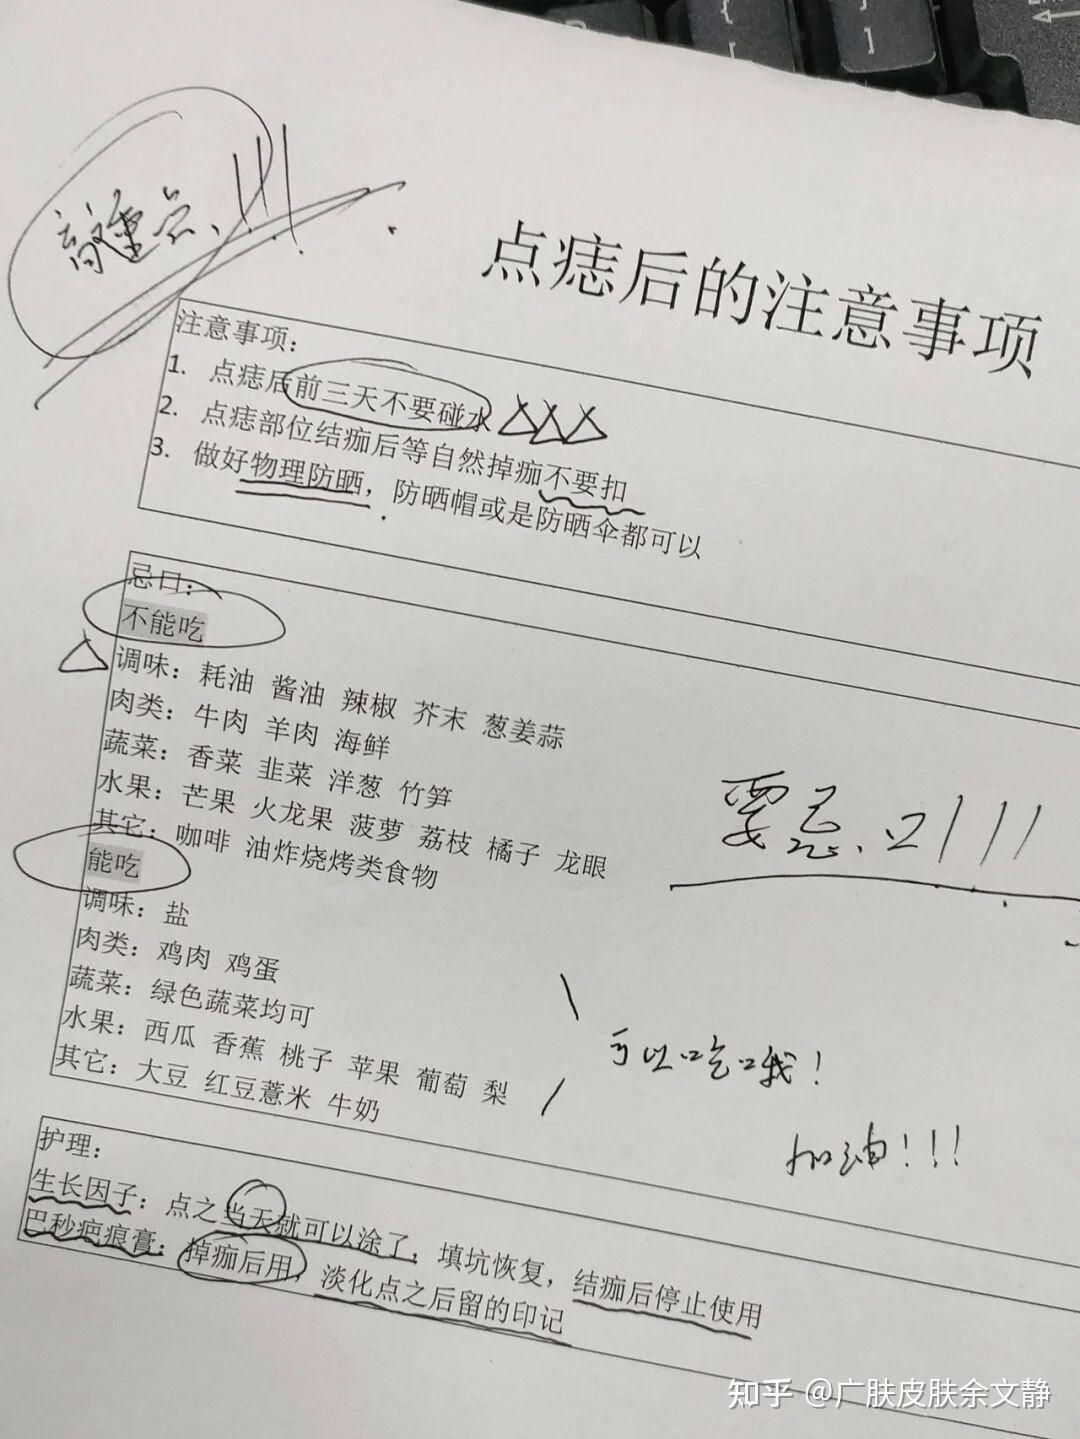 划重点!!!
点痣后的注意事项
注意事项：
1. 点痣后前三天不要碰水
2. 点痣部位结痂后等自然掉痂不要扣
3. 做好物理防晒，防晒帽或是防晒伞都可以
忌口：
不能吃
调味：耗油 酱油 辣椒 芥末 葱姜蒜
肉类：牛肉 羊肉 海鲜
蔬菜：香菜 韭菜 洋葱 竹笋
水果：芒果 火龙果 菠萝 荔枝 橘子 龙眼
其它：咖啡 油炸烧烤类食物
要忌口!!!
能吃
调味：盐
肉类：鸡肉 鸡蛋
蔬菜：绿色蔬菜均可
水果：西瓜 香蕉 桃子 苹果 葡萄 梨
其它：大豆 红豆薏米 牛奶
可以吃哦!
加油!!!
护理：
生长因子：点之当天就可以涂了，填坑恢复，结痂后停止使用
巴秒疤痕膏：掉痂后用，淡化点之后留的印记
知乎 @广肤皮肤余文静